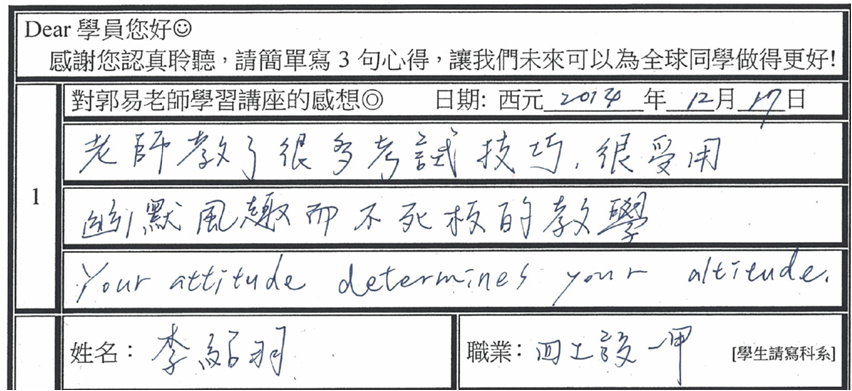 Dear 學員您好☺
感謝您認真聆聽，請簡單寫 3 句心得，讓我們未來可以為全球同學做得更好!
1
對郭易老師學習講座的感想◎ 日期: 西元 2014 年 12 月 17 日
老師教了很多考試技巧，很受用
幽默風趣而不死板的教學
Your attitude determines your altitude.
姓名： 李紹羽 職業： 四工設一甲 [學生請寫科系]